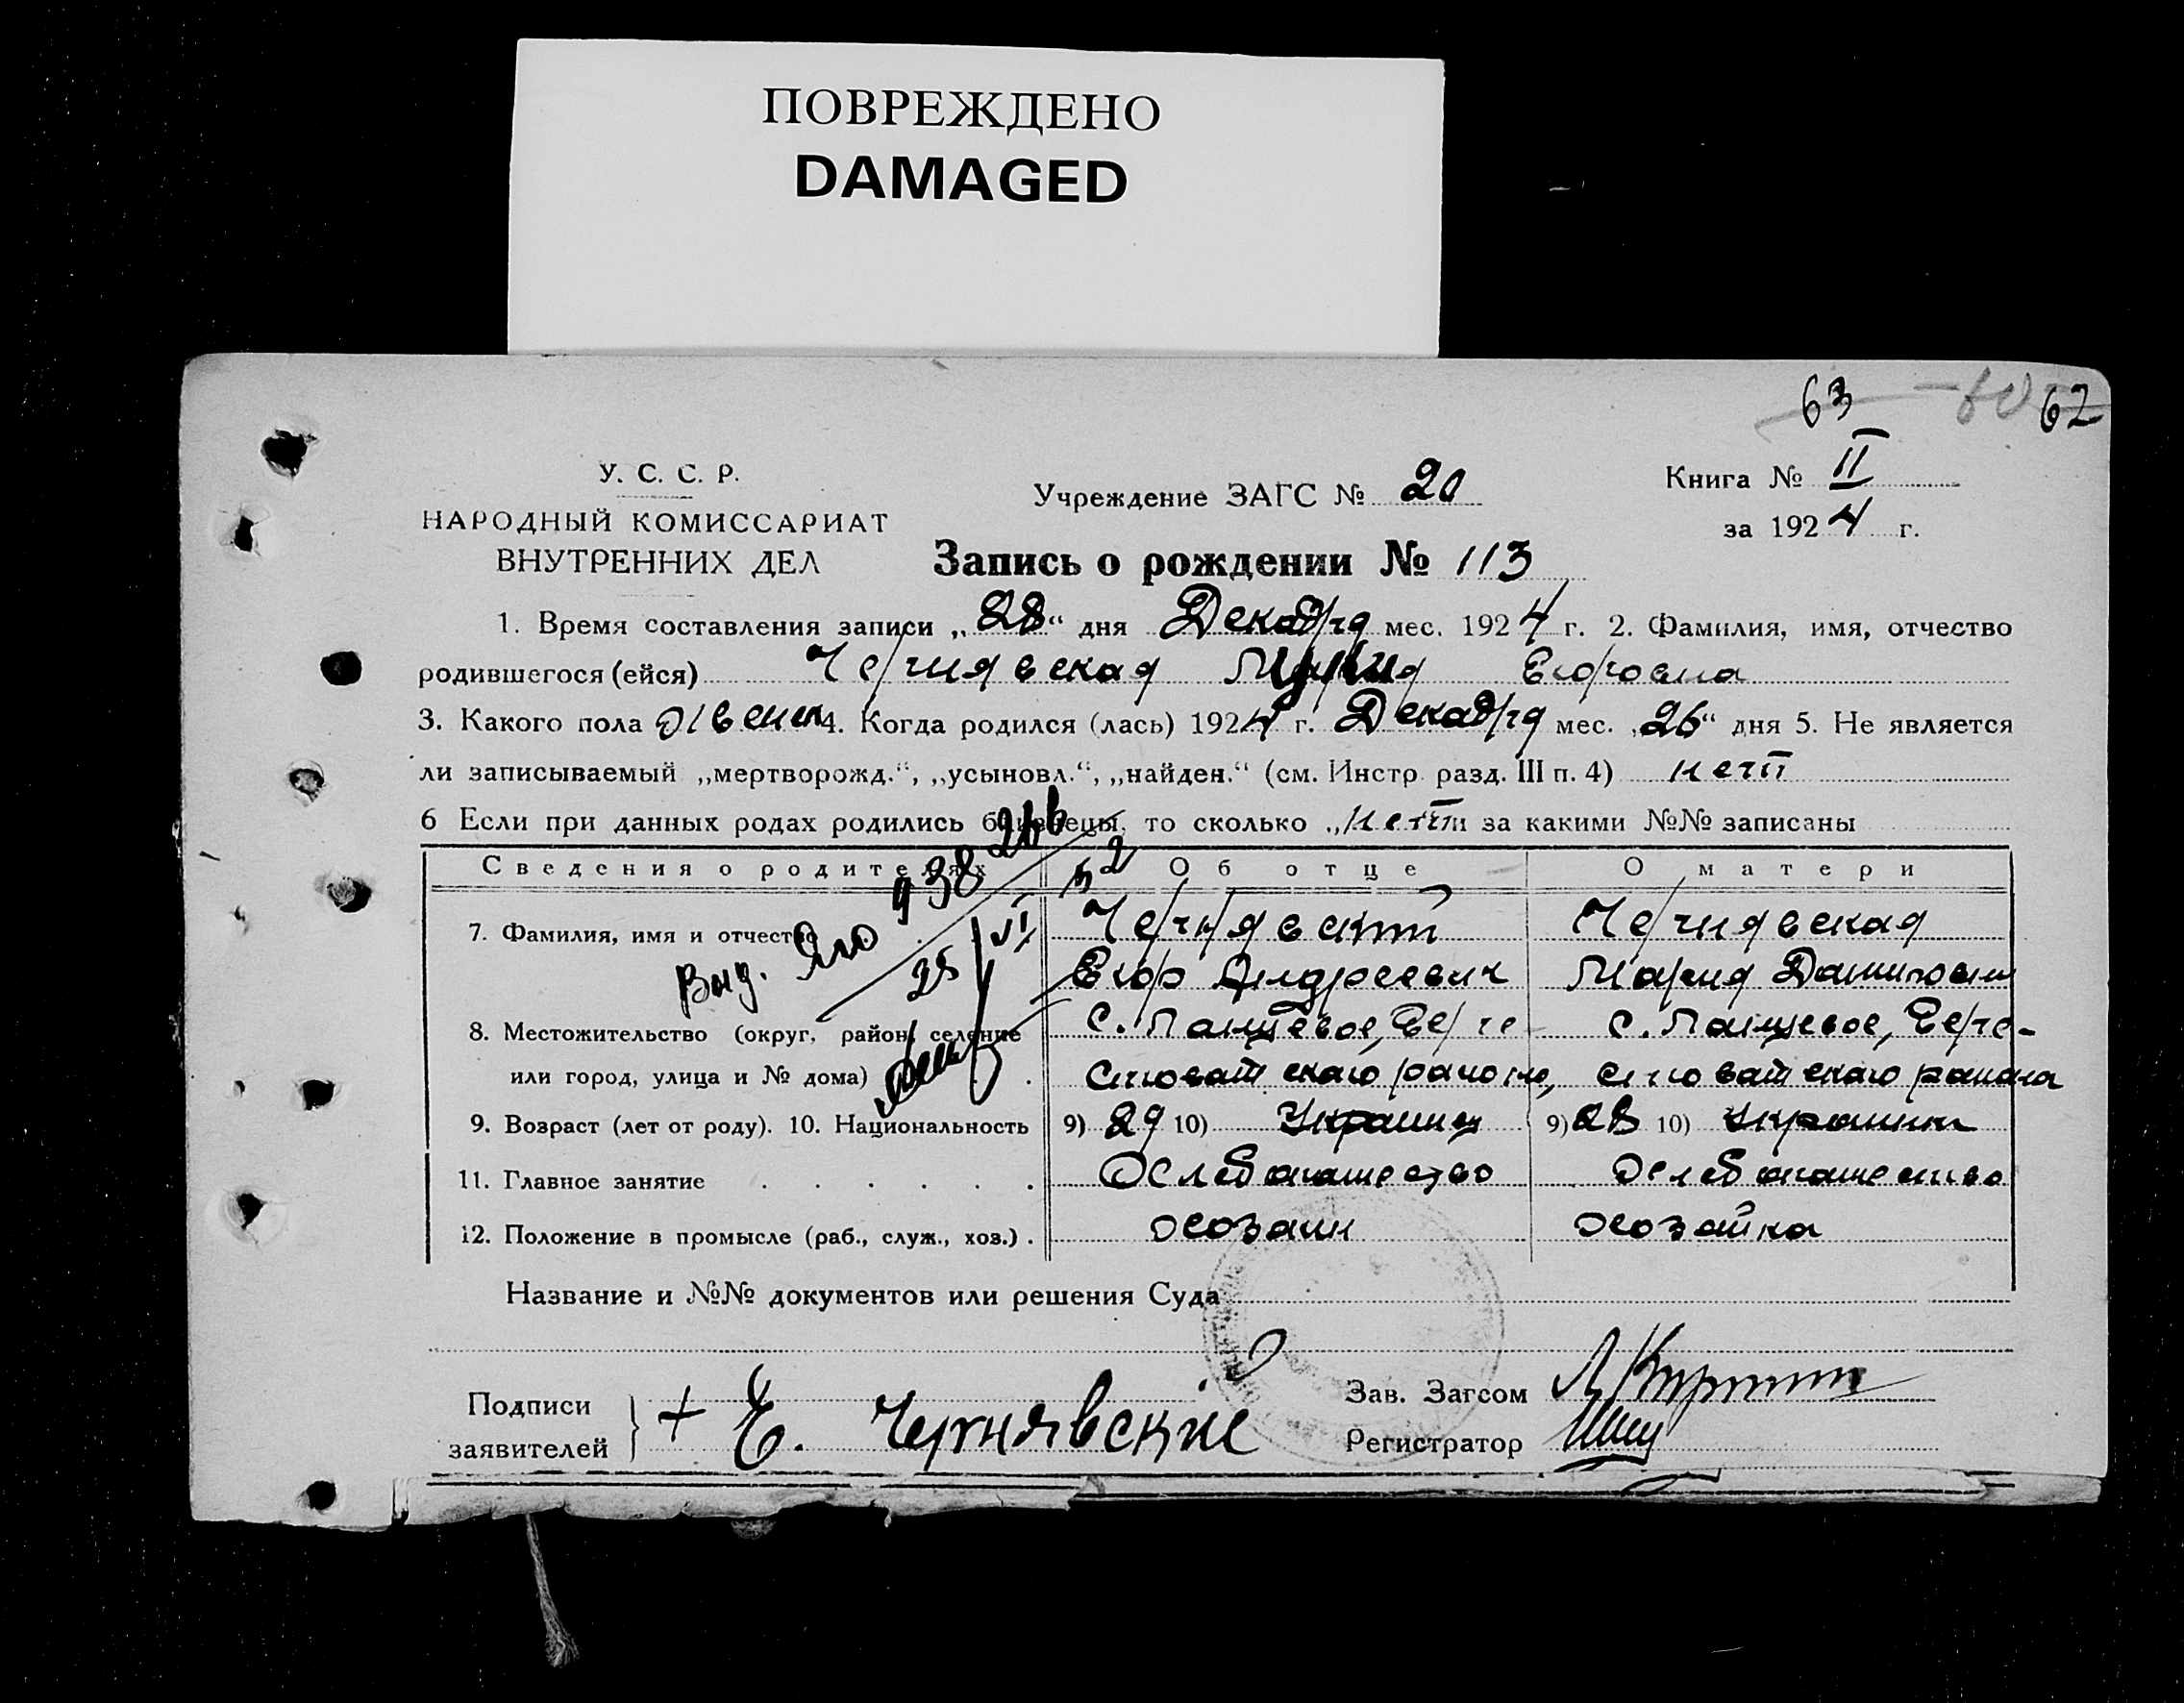 ПОВРЕЖДЕНО
DAMAGED
63 60 62
У. С. С. Р.
НАРОДНЫЙ КОМИССАРИАТ
ВНУТРЕННИХ ДЕЛ
Учреждение ЗАГС № 20
Книга № II
за 1924 г.
Запись о рождении № 113
1. Время составления записи „28“ дня Декабря мес. 1924 г. 2. Фамилия, имя, отчество
родившегося (ейся) Чернявская Мария Егоровна
3. Какого пола женск 4. Когда родился (лась) 1924 г. Декабря мес. „26“ дня 5. Не является
ли записываемый „мертворожд.“, „усыновл.“, „найден.“ (см. Инстр. разд. III п. 4) нет
6 Если при данных родах родились близнецы, то сколько „нет и за какими №№ записаны
Сведения о родителях Об отце О матери
7. Фамилия, имя и отчество Чернявский Чернявская
Егор Андреевич Мария Даниловна
8. Местожительство (округ, район, селение с. Танцевое, Бере- с. Танцевое, Бере-
или город, улица и № дома) стоватскаго района, стоватскаго района
9. Возраст (лет от роду). 10. Национальность 9) 29 10) Украинц 9) 28 10) Украинка
11. Главное занятие Хлебопашество Хлебопашество
12. Положение в промысле (раб., служ., хоз.) хозаин хозайка
Выд.
938
25 VI
Название и №№ документов или решения Суда
Подписи заявителей + Е. Чернявские
Зав. Загсом
Регистратор